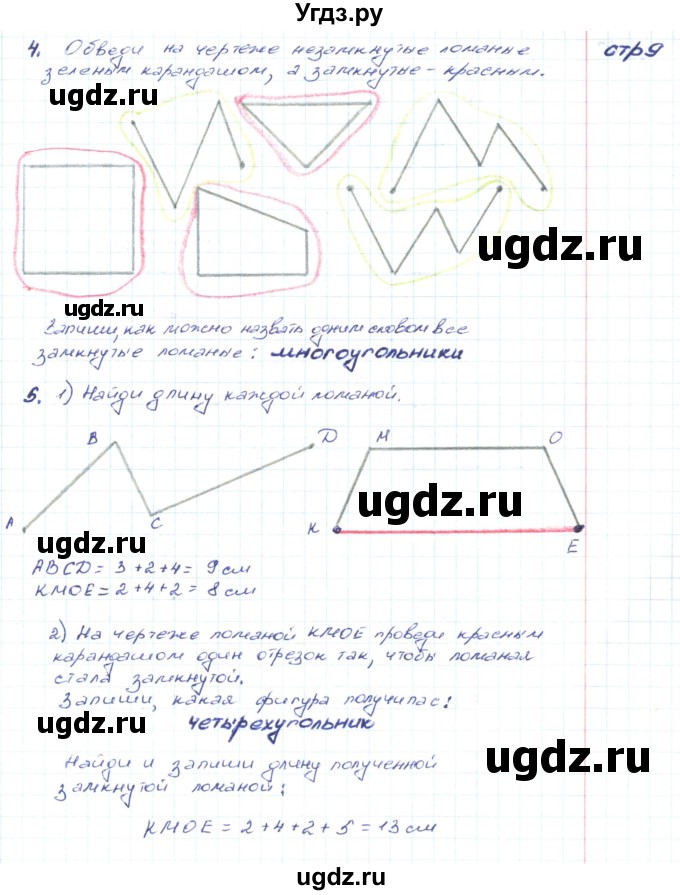 Угдз.ру
4. Обведи на чертеже незамкнутые ломаные
стр9
зеленым карандашом, а замкнутые - красным.
ugdz.ru
ugdz.ru
ugdz.ru
ugdz.ru
Запиши, как можно назвать одним словом все
замкнутые ломаные: многоугольники
5. 1) Найди длину каждой ломаной.
B
D
M
O
ugdz.ru
A
C
K
E
ugdz.ru
ABCD = 3 + 2 + 4 = 9 см
KMOE = 2 + 4 + 2 = 8 см
2) На чертеже ломаной KMOE проведи красным
карандашом один отрезок так, чтобы ломаная
стала замкнутой.
Запиши, какая фигура получилас:
ugdz.ru
четырехугольник
ugdz.ru
Найди и запиши длину полученной
замкнутой ломаной:
ugdz.ru
KMOE = 2 + 4 + 2 + 5 = 13 см
ugdz.ru